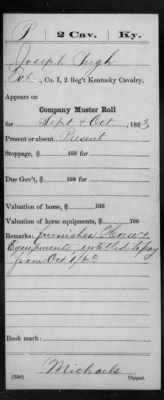 P | 2 Cav. | Ky.
Joseph Pugh
Pvt., Co. I, 2 Reg't Kentucky Cavalry.
Appears on
Company Muster Roll
for Sept & Oct, 1863.
Present or absent Present
Stoppage, $ 100 for
Due Gov't, $ 100 for
Valuation of horse, $ 100
Valuation of horse equipments, $ 100
Remarks: furnishes Horse &
Equipments entitled to pay
from Oct 1/63
Book mark:
Michaels
(358) Copyist.